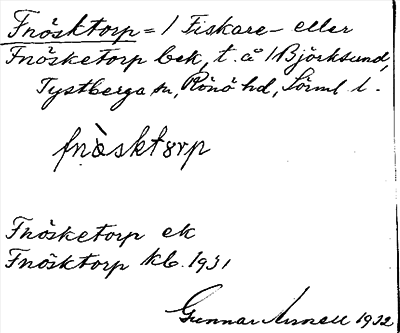 Fnösktorp = / Fiskare- eller
Fnösketorp bek, t. å / Björksund,
Tystberga sn, Rönö hd, Sörml l.
fnö̀skt
Fnösketorp ek
Fnösktorp kb. 1931
Gunnar 1932